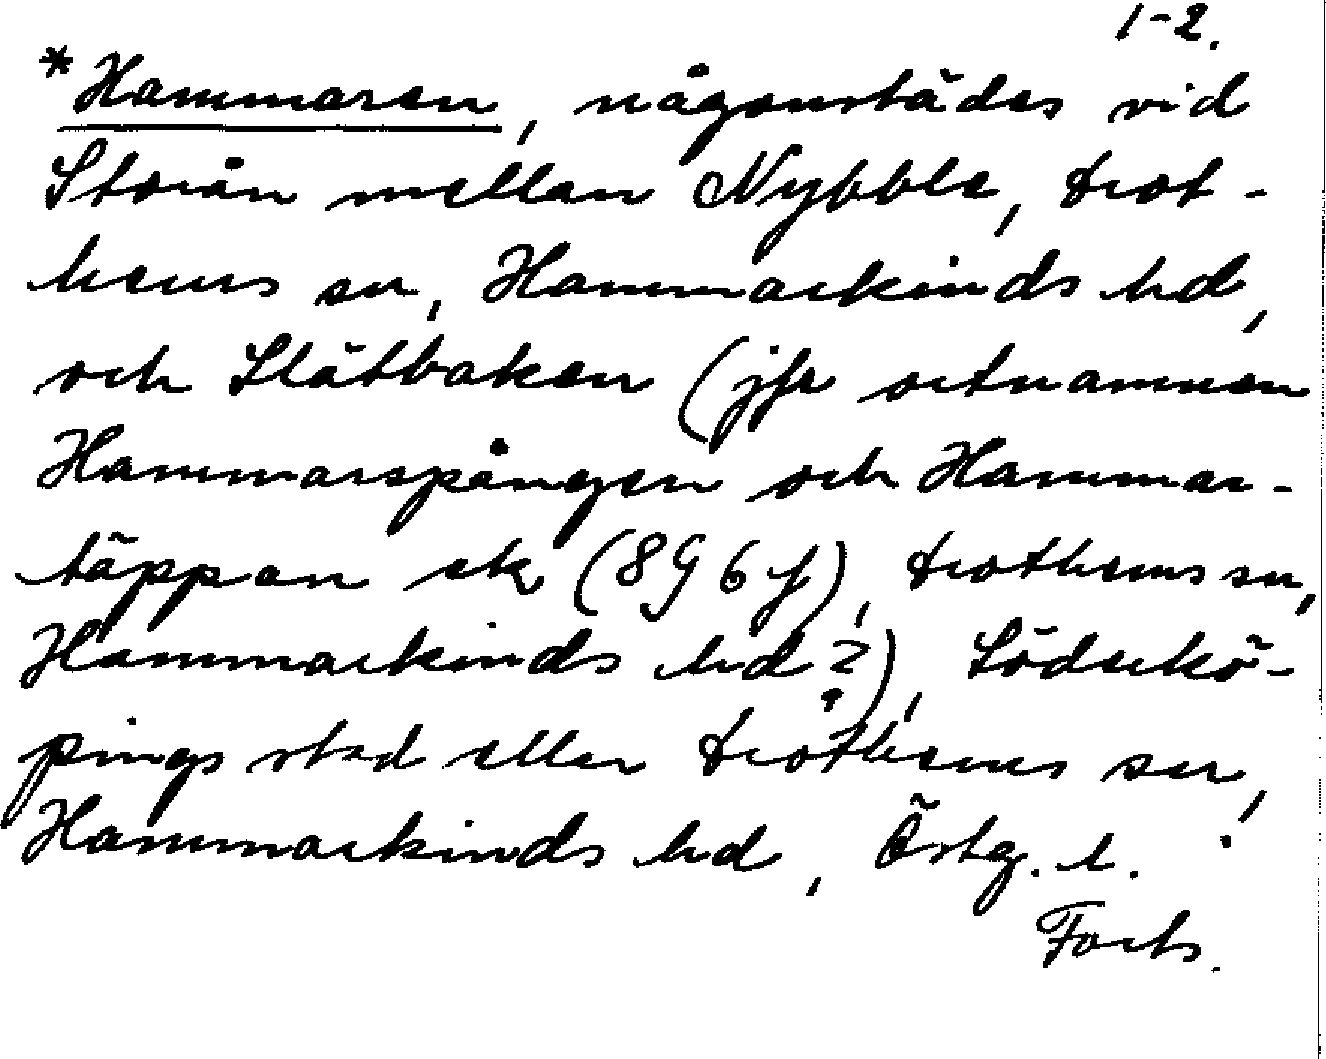 1-2.
*Hammaren, någonstädes vid
Storån mellan Nybble, Drot-
hems sn, Hammarkinds hd,
och Slätbaken (jfr ortnamnen
Hammarspången och Hammar-
täppan ek (8G 6f), Drothems sn,
Hammarkinds hd?), Söderkö-
pings stad eller Drothems sn,
Hammarkinds hd, Östg. l.
Forts.